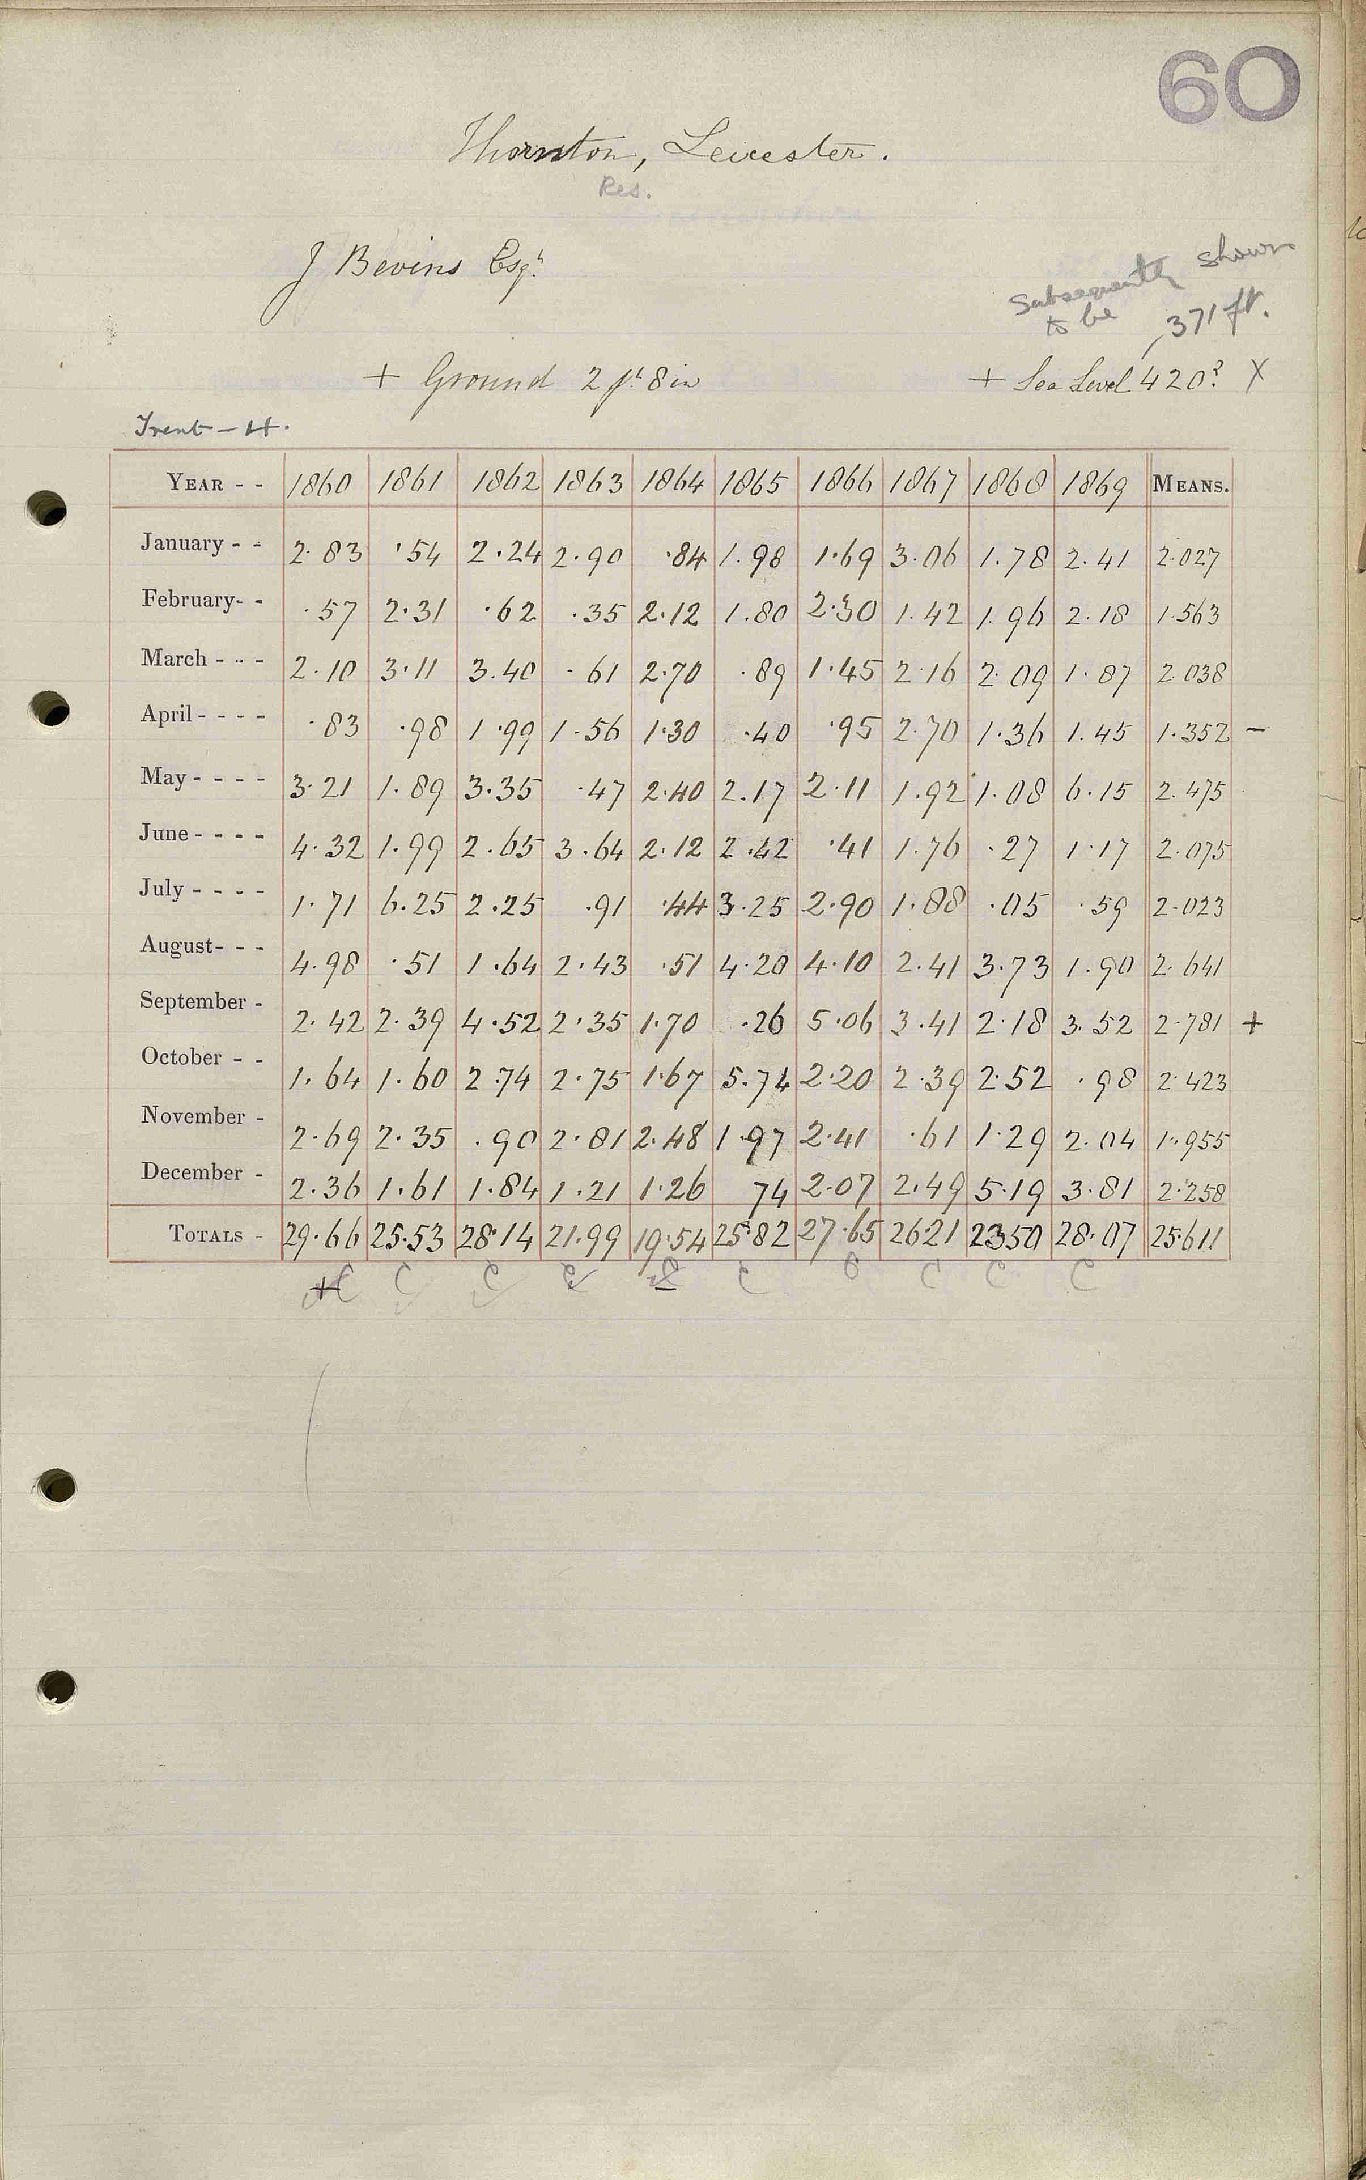 60
Thornton, Leicester.
Res.
J Bevins Esqr.
Subsequently shown
to be 371 ft.
+ Ground 2 ft 8 in + Sea Level 420? X
Trent - 4.
YEAR - - 1860 1861 1862 1863 1864 1865 1866 1867 1868 1869 MEANS.
January - - 2.83 .54 2.24 2.90 .84 1.98 1.69 3.06 1.78 2.41 2.027
February- - .57 2.31 .62 .35 2.12 1.80 2.30 1.42 1.96 2.18 1.563
March - - - 2.10 3.11 3.40 .61 2.70 .89 1.45 2.16 2.09 1.87 2.038
April - - - - .83 .98 1.99 1.56 1.30 .40 .95 2.70 1.36 1.45 1.352 -
May - - - - 3.21 1.89 3.35 .47 2.40 2.17 2.11 1.92 1.08 6.15 2.475
June - - - - 4.32 1.99 2.65 3.64 2.12 2.42 .41 1.76 .27 1.17 2.075
July - - - - 1.71 6.25 2.25 .91 .44 3.25 2.90 1.88 .05 .59 2.023
August- - - 4.98 .51 1.64 2.43 .51 4.20 4.10 2.41 3.73 1.90 2.641
September - 2.42 2.39 4.52 2.35 1.70 .26 5.06 3.41 2.18 3.52 2.781 +
October - - 1.64 1.60 2.74 2.75 1.67 5.74 2.20 2.39 2.52 .98 2.423
November - 2.69 2.35 .90 2.81 2.48 1.97 2.41 .61 1.29 2.04 1.955
December - 2.36 1.61 1.84 1.21 1.26 74 2.07 2.49 5.19 3.81 2.258
TOTALS - 29.66 25.53 28.14 21.99 19.54 25.82 27.65 26.21 23.50 28.07 25.611
C C C C C C C C